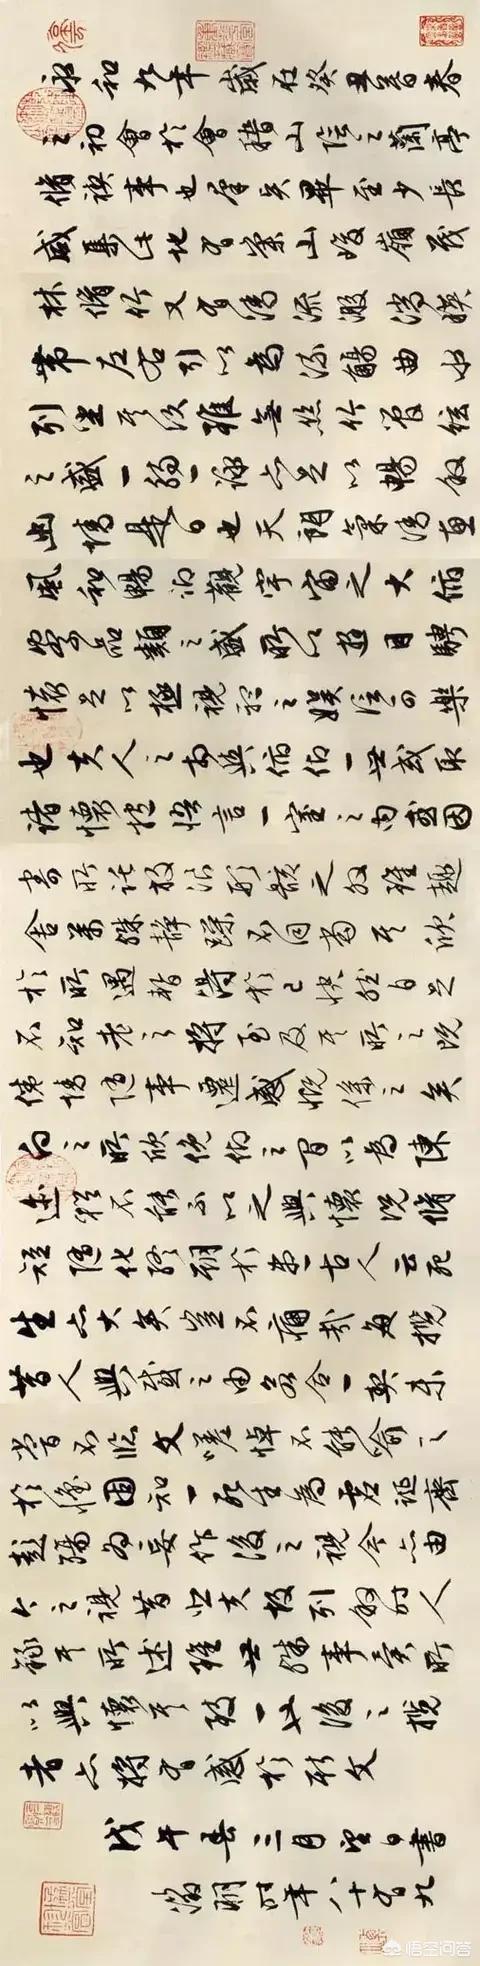 永和九年歲在癸丑暮春
之初會於會稽山陰之蘭亭
脩禊事也羣賢畢至少長
咸集此地有崇山峻嶺茂
林脩竹又有清流激湍暎
帶左右引以為流觴曲水
列坐其次雖無絲竹管絃
之盛一觴一詠亦足以暢敘
幽情是日也天朗氣清惠
風和暢仰觀宇宙之大俯
察品類之盛所以遊目騁
懷足以極視聽之娛信可樂
也夫人之相與俯仰一世或取
諸懷抱悟言一室之內或因
寄所託放浪形骸之外雖趣
舍萬殊靜躁不同當其欣
於所遇暫得於己快然自足
不知老之將至及其所之既
倦情隨事遷感慨係之矣
向之所欣俛仰之間以為陳
迹猶不能不以之興懷況脩
短隨化終期於盡古人云死
生亦大矣豈不痛哉每攬
昔人興感之由若合一契未
嘗不臨文嗟悼不能喻之
於懷固知一死生為虛誕齊
彭殤為妄作後之視今亦由
今之視昔悲夫故列敘時人
錄其所述雖世殊事異所
以興懷其致一也後之攬
者亦將有感於斯文
戊午春三月望日書
徵明時年八十有九
悟空问答